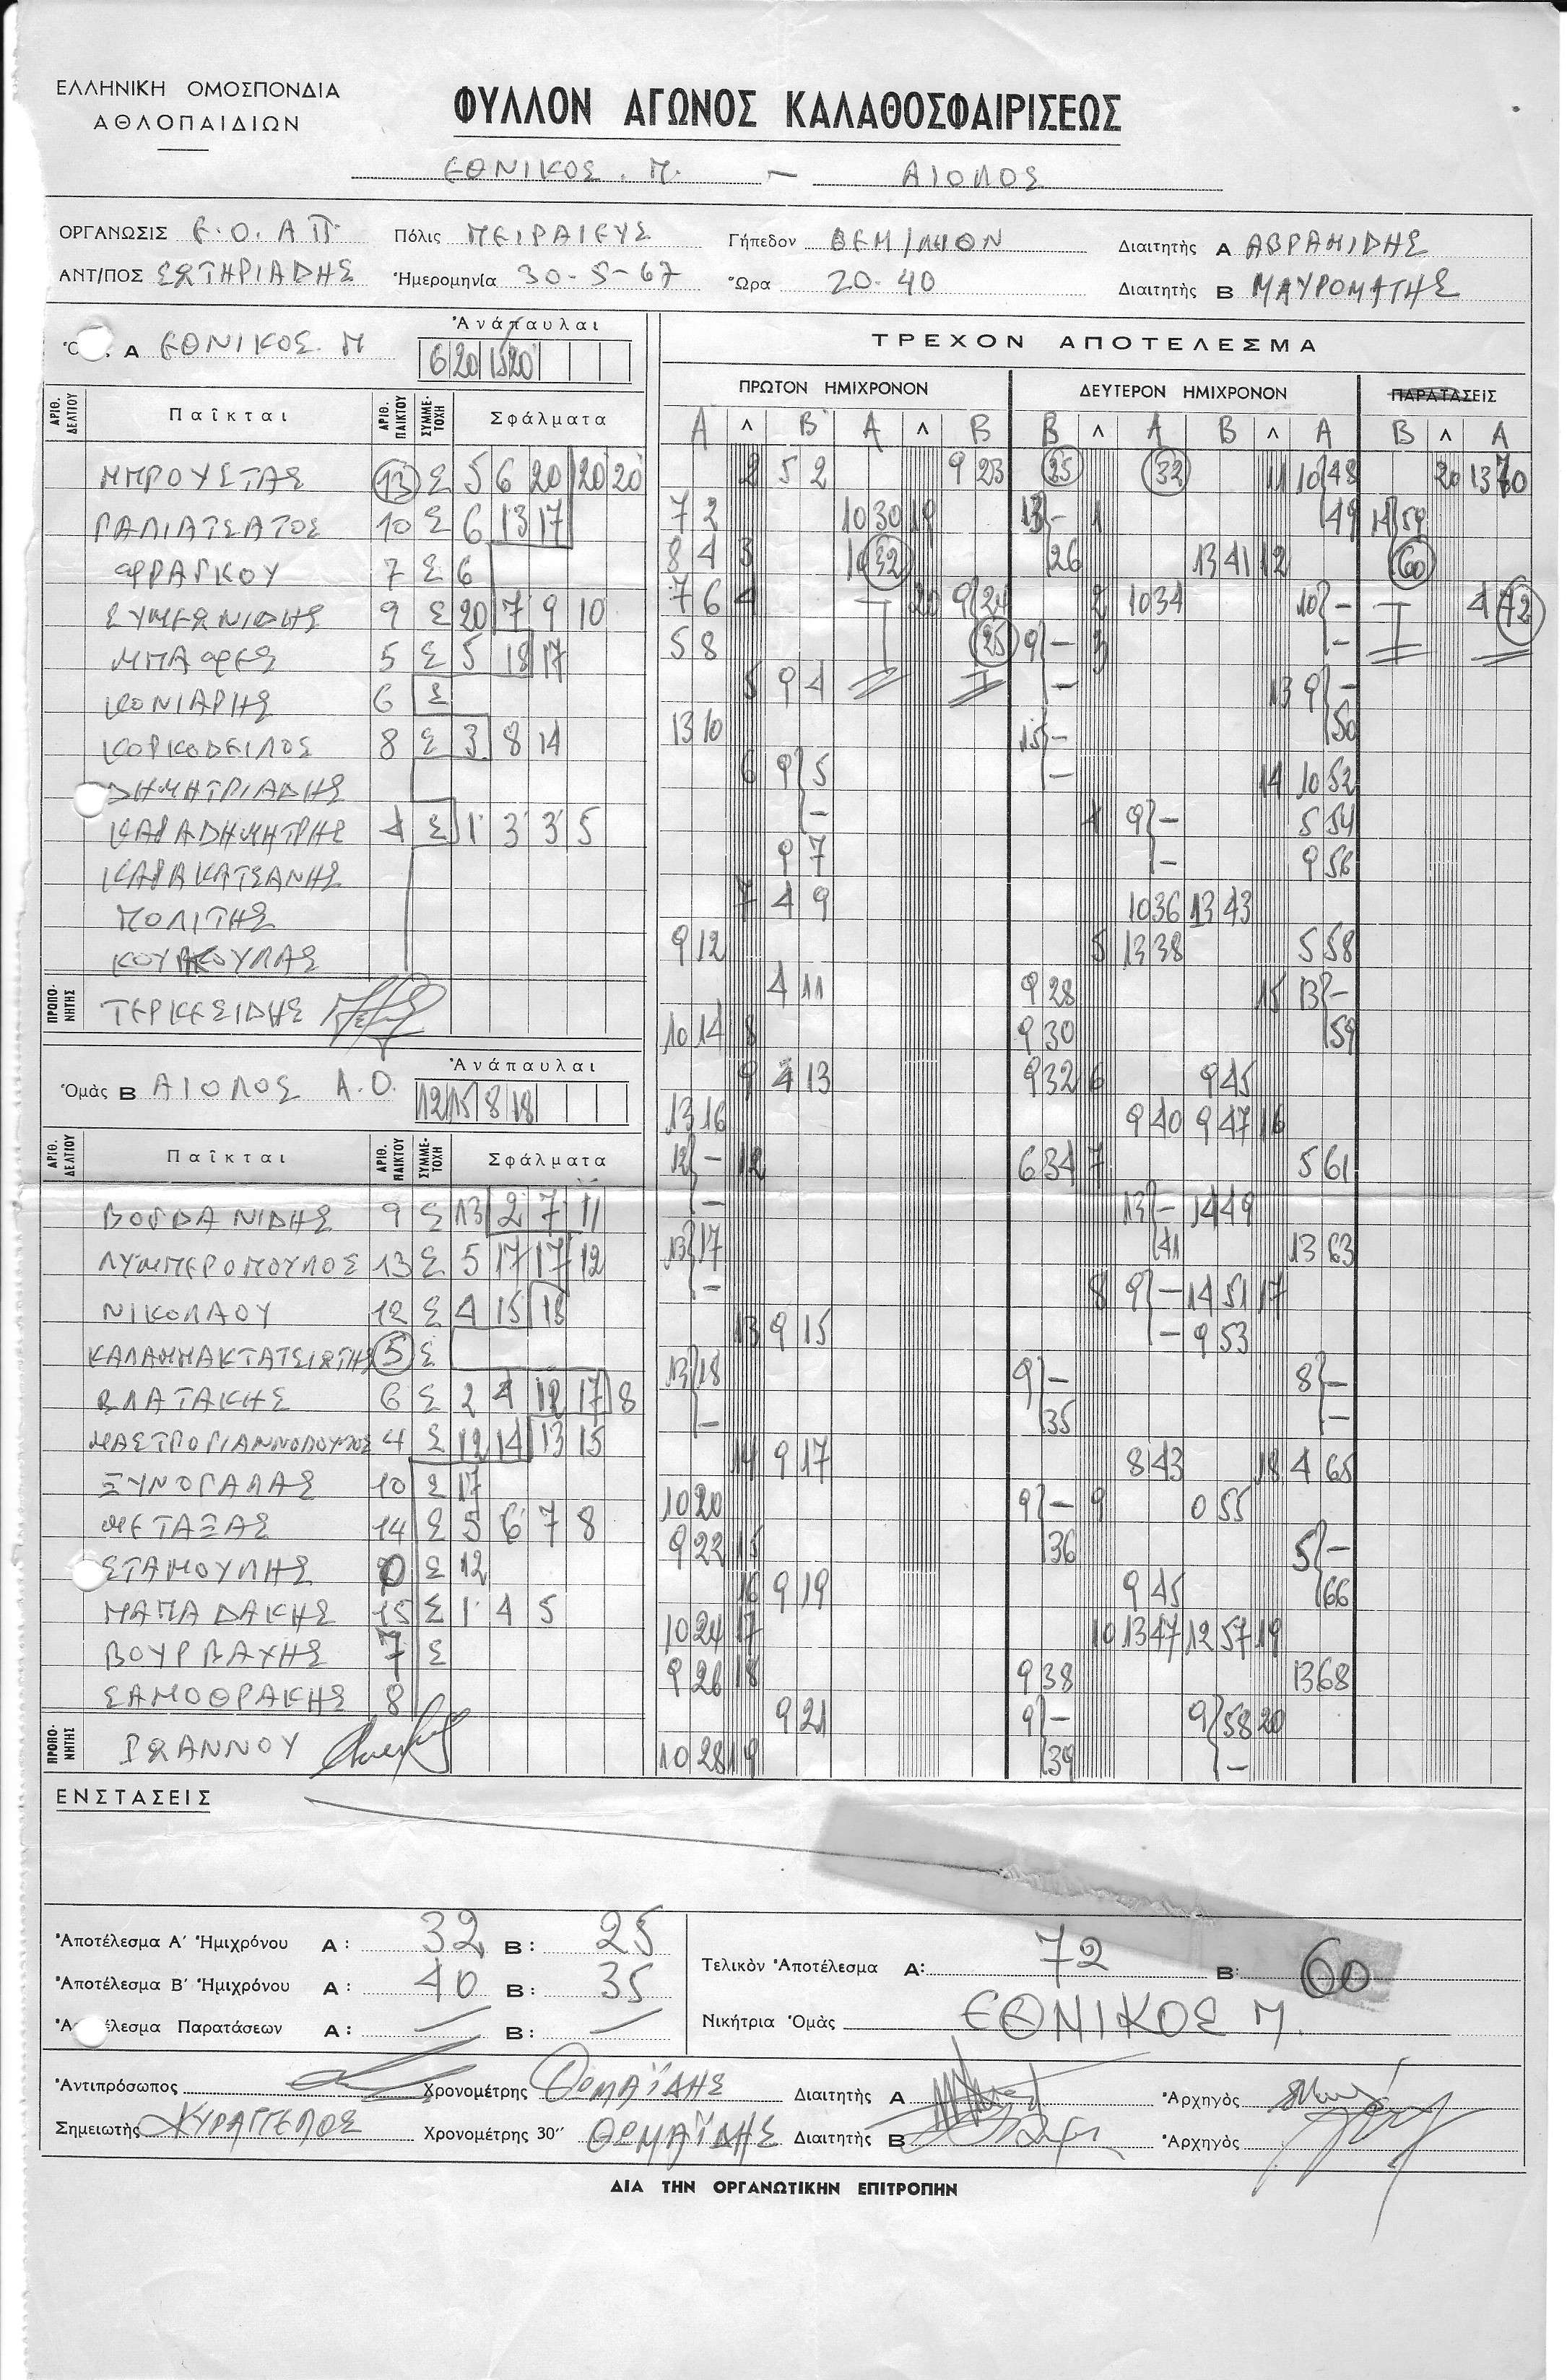 ΕΛΛΗΝΙΚΗ ΟΜΟΣΠΟΝΔΙΑ
ΑΘΛΟΠΑΙΔΙΩΝ
ΦΥΛΛΟΝ ΑΓΩΝΟΣ ΚΑΛΑΘΟΣΦΑΙΡΙΣΕΩΣ
ΕΘΝΙΚΟΣ. Π. — ΑΙΟΛΟΣ
ΟΡΓΑΝΩΣΙΣ Ε.Ο.ΑΠ Πόλις ΠΕΙΡΑΙΕΥΣ Γήπεδον Διαιτητὴς Α ΑΒΡΑΜΙΔΗΣ
ΑΝΤ/ΠΟΣ ΣΩΤΗΡΙΑΔΗΣ Ἡμερομηνία 30-5-67 Ὥρα 20.40 Διαιτητὴς Β ΜΑΥΡΟΜΑΤΗΣ
Ἀνάπαυλαι
Α ΕΘΝΙΚΟΣ. Π 6 20 15 20
ΤΡΕΧΟΝ ΑΠΟΤΕΛΕΣΜΑ
ΠΡΩΤΟΝ ΗΜΙΧΡΟΝΟΝ ΔΕΥΤΕΡΟΝ ΗΜΙΧΡΟΝΟΝ ΠΑΡΑΤΑΣΕΙΣ
ΑΡΙΘ. ΔΕΛΤΙΟΥ Παῖκται ΑΡΙΘ. ΠΑΙΚΤΟΥ ΣΥΜΜΕΤΟΧΗ Σφάλματα
Α Λ Β Α Λ Β Β Λ Α Β Λ Α Β Λ Α
ΜΠΡΟΥΣΤΑΣ 13 Σ 5 6 20 20 20
ΓΑΛΙΑΤΣΑΤΟΣ 10 Σ 6 13 17
ΦΡΑΓΚΟΥ 7 Σ 6
ΣΥΜΕΩΝΙΔΗΣ 9 Σ 20 7 9 10
ΜΠΑΦΕΣ 5 Σ 5 18 17
ΚΟΝΙΑΡΗΣ 6 Σ
ΚΟΡΚΟΔΕΙΛΟΣ 8 Σ 3 8 14
ΔΗΜΗΤΡΙΑΔΗΣ
ΚΑΡΑΔΗΜΗΤΡΗΣ 4 Σ 1 3 3 5
ΚΑΡΑΚΑΤΣΑΝΗΣ
ΠΟΛΙΤΗΣ
ΠΡΟΠΟΝΗΤΗΣ ΤΕΡΚΕΣΙΔΗΣ
Ἀνάπαυλαι
Ὁμὰς Β ΑΙΟΛΟΣ Α.Ο. 12 15 8 18
ΑΡΙΘ. ΔΕΛΤΙΟΥ Παῖκται ΑΡΙΘ. ΠΑΙΚΤΟΥ ΣΥΜΜΕΤΟΧΗ Σφάλματα
ΒΟΓΔΑΝΙΔΗΣ 9 Σ 13 2 7 11
ΛΥΜΠΕΡΟΠΟΥΛΟΣ 13 Σ 5 17 17 12
ΝΙΚΟΛΑΟΥ 12 Σ 4 15 18
5 Σ
ΒΛΑΤΑΚΗΣ 6 Σ 2 4 12 17 8
ΜΑΣΤΡΟΓΙΑΝΝΟΠΟΥΛΟΣ 4 Σ 12 14 13 15
ΞΥΝΟΓΑΛΑΣ 10 Σ 17
ΜΕΤΑΞΑΣ 14 Σ 5 6 7 8
ΣΤΑΜΟΥΛΗΣ 0 Σ 12
ΠΑΠΑΔΑΚΗΣ 15 Σ 1 4 5
ΒΟΥΡΒΑΧΗΣ 7 Σ
ΣΑΜΟΘΡΑΚΗΣ 8
ΠΡΟΠΟΝΗΤΗΣ ΙΩΑΝΝΟΥ
2 5 2 9 23 25 32 11 10 48 20 13 70
7 2 10 30 19 13 – 1 49 14 59
8 4 3 10 32 26 13 41 12 60
7 6 4 20 9 24 2 10 34 10 – 4 72
5 8 25 9 – 3 –
5 9 4 – 13 9 –
13 10 15 – 50
6 9 5 – 14 10 52
– 4 9 – 5 54
9 7 – 9 56
7 4 9 10 36 13 43
9 12 5 13 38 5 58
4 11 9 28 15 13 –
10 14 8 9 30 59
9 4 13 9 32 6 9 45
13 16 9 40 9 47 16
12 – 12 6 34 7 5 61
– 13 – 14 49
13 17 41 13 63
– 8 9 – 14 51 17
13 9 15 – 9 53
13 18 9 – 8 –
– 35 –
14 9 17 8 43 18 4 65
10 20 9 – 9 0 55
9 22 15 36 5 –
16 9 19 9 45 66
10 24 17 10 13 47 12 57 19
9 26 18 9 38 13 68
9 21 9 – 9 58 20
10 28 19 39 –
ΕΝΣΤΑΣΕΙΣ
Ἀποτέλεσμα Α΄ Ἡμιχρόνου Α: 32 Β: 25
Ἀποτέλεσμα Β΄ Ἡμιχρόνου Α: 40 Β: 35
Παρατάσεων Α: — Β: —
Τελικὸν Ἀποτέλεσμα Α: 72 Β: 60
Νικήτρια Ὁμὰς ΕΘΝΙΚΟΣ Π.
Ἀντιπρόσωπος Χρονομέτρης ΘΩΜΑΪΔΗΣ Διαιτητὴς Α Ἀρχηγὸς
Σημειωτὴς ΚΥΡΑΓΓΕΛΟΣ Χρονομέτρης 30'' ΘΩΜΑΪΔΗΣ Διαιτητὴς Β Ἀρχηγὸς
ΔΙΑ ΤΗΝ ΟΡΓΑΝΩΤΙΚΗΝ ΕΠΙΤΡΟΠΗΝ